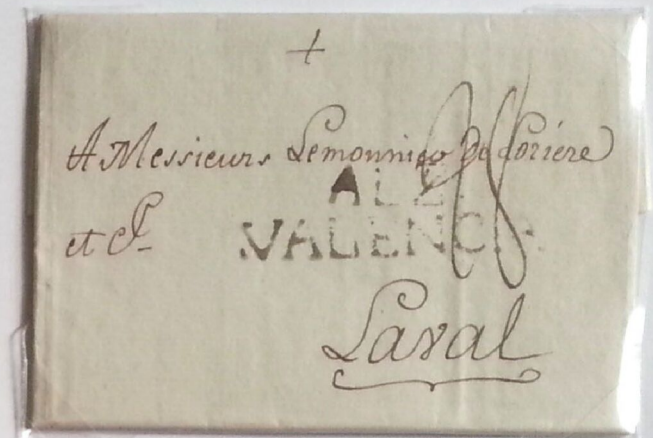 +
A Messieurs Lemonnier De Lorière
et Cie
VALENCIA
Laval